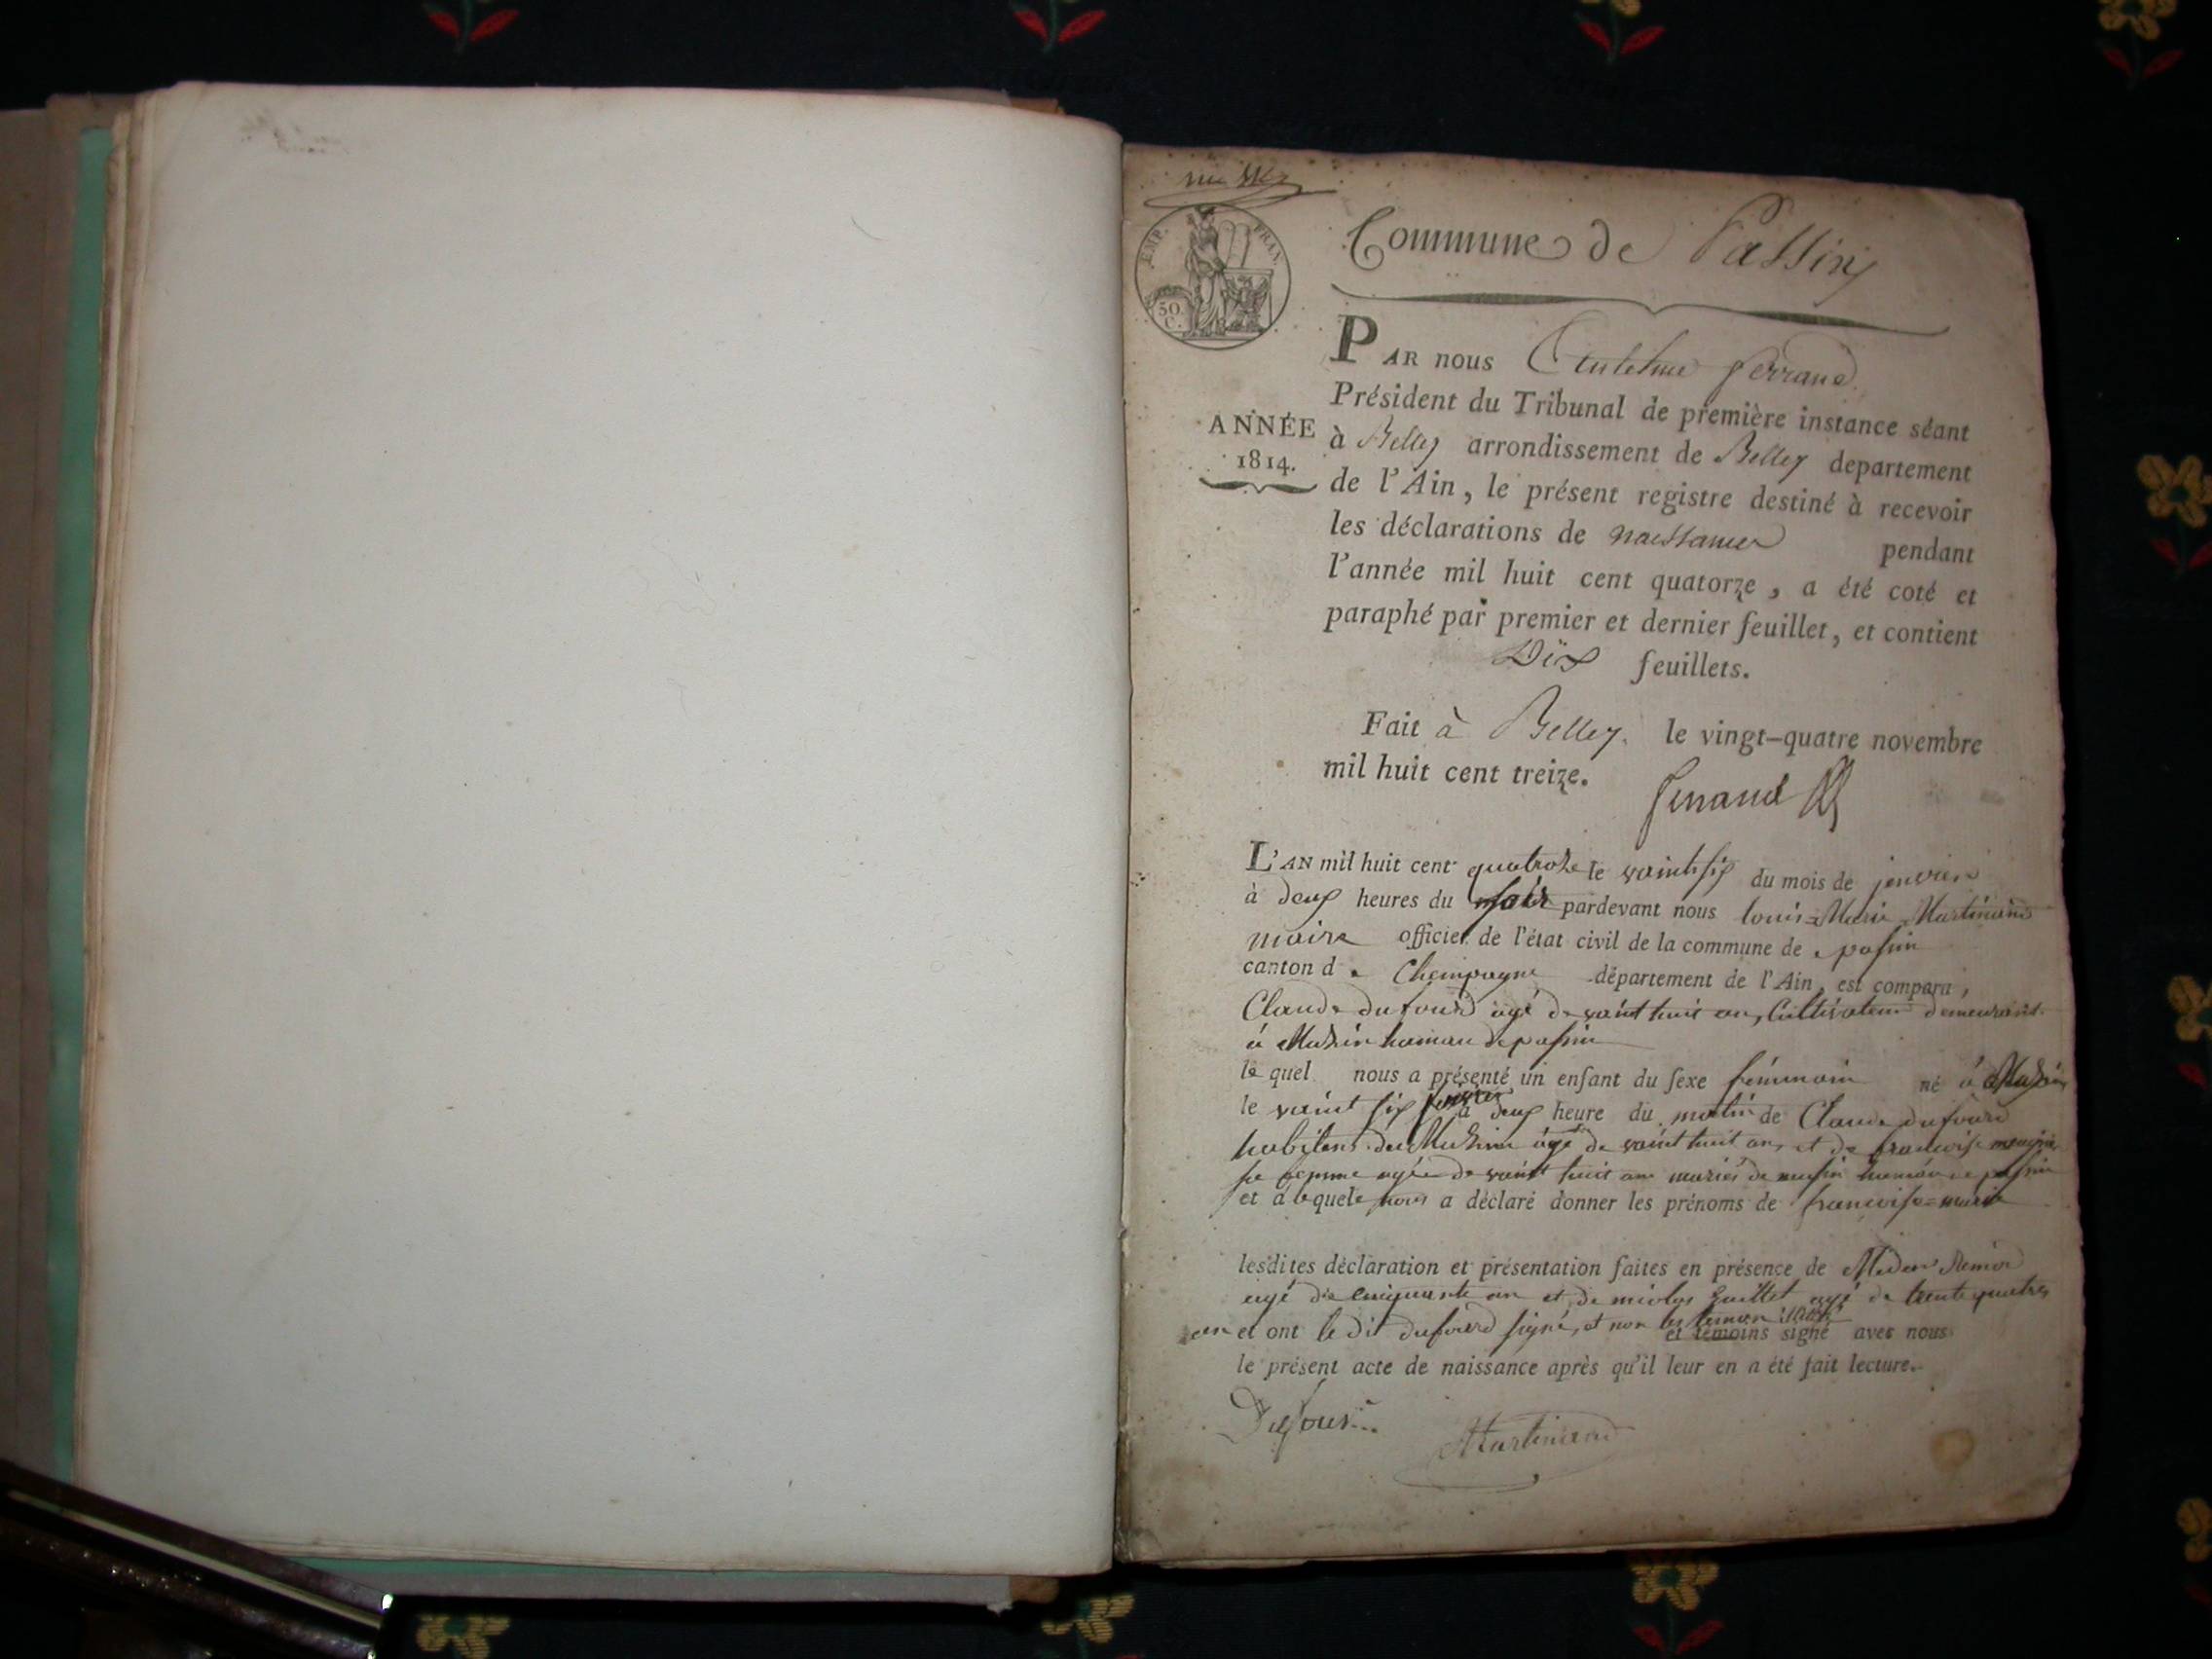 EMP. FRAN.
50 C.
Commune de Passin
PAR nous Anthelme ferrand
Président du Tribunal de première instance séant
ANNÉE
1814.
à Belley arrondissement de Belley departement
de l'Ain, le présent registre destiné à recevoir
les déclarations de naissances pendant
l'année mil huit cent quatorze, a été coté et
paraphé par premier et dernier feuillet, et contient
Dix feuillets.
Fait à Belley. le vingt-quatre novembre
mil huit cent treize.
ferrand
L'AN mil huit cent quatorze le vaintsix du mois de janvier
à deux heures du soir pardevant nous louis=Marie Martinand
maire officier de l'état civil de la commune de passin
canton de Champagne département de l'Ain, est comparu,
Claude dufourd agé de vaint huit an, Cultivateur demeurant
à Muzin hamau de passin
le quel nous a présenté un enfant du sexe féminain né à Muzin
le vaint six janvier à deux heure du matin de Claude dufourd
habitant de Muzin agé de vaint huit an, et de francoise
sa femme agée de vaint huit an mariés de muzin hamau de passin
et à lequele nous a déclaré donner les prénoms de francoise=marie
lesdites déclaration et présentation faites en présence de
agé de cinquante an et de nicolas Guillet agé de trente quatres
an et ont le dit dufourd signé, et non les temoin
et témoins signé avec nous
le présent acte de naissance après qu'il leur en a été fait lecture.
Dufour
Martinand